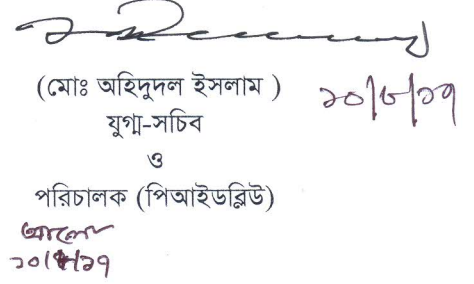 (মোঃ অহিদুদল ইসলাম )
১০/৮/১৭
যুগ্ম-সচিব
ও
পরিচালক (পিআইডব্লিউ)